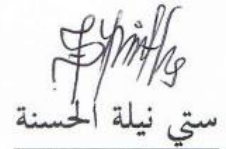 ستي نيلة الحسنة